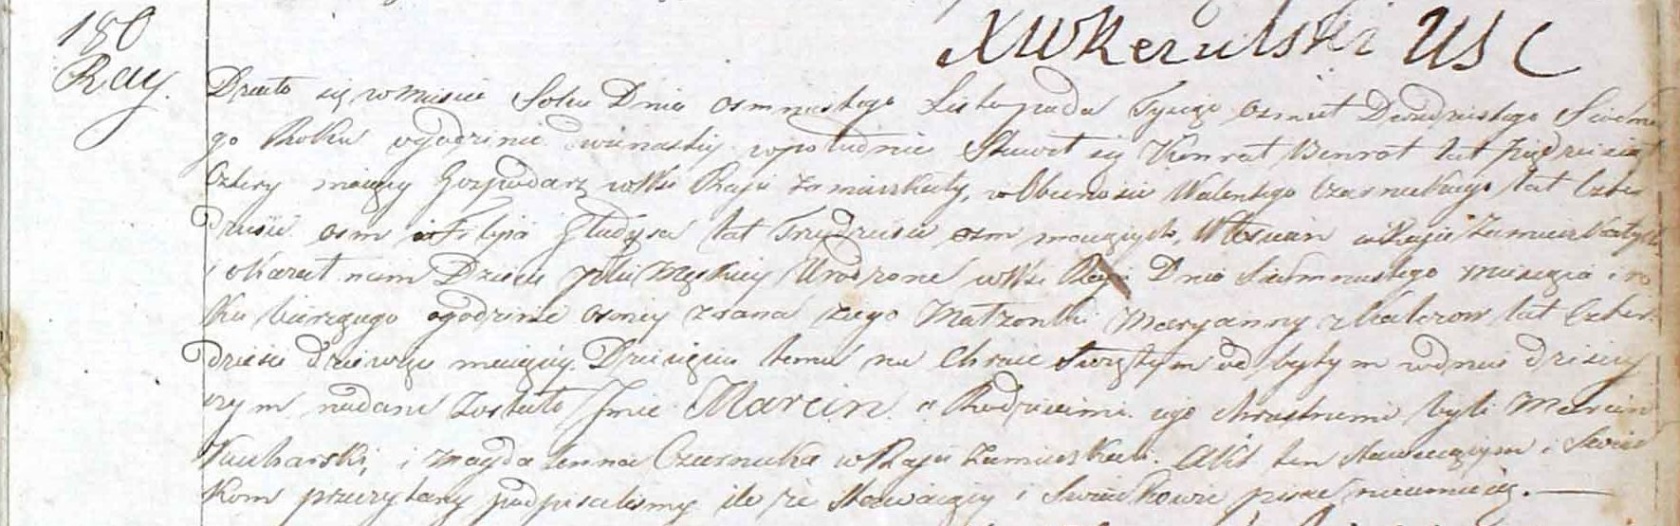 180
Ray.
XWKerulski USC
Działo się w Mieście Dnia osmnastego Listopada Tysiąc osmset Dwudziestego Siodme
go Roku o godzinie dwunastey w południe Stawił się Konrat Benrot lat Pięćdziesiąt
Cztery maiący Gospodarz w Wsi Raju zamieszkały, w Obecności Walentego Czarneckiego lat Czter
dzieści osm i Filipa Gładysa lat Trzydzieści osm maiących, Włoscian w Raju zamieszkałych
i okazał nam Dziecie płci Męskiey Urodzone w Wsi Raju Dnia Siedmnastego miesiąca i ro
ku bierzącego o godzinie osmey zrana z iego Małżonki Maryanny z lat Czter
dzieści dziewięć maiącey. Dziecięciu temu na Chrzcie Swiętym odbytym w dniu dzisiey
szym nadane zostało Jmie Marcin a Rodzicami iego chrzestnemi byli Marcin
Kucharski, i Magdalenna Czarnecka w Raju zamieszkali. Akt ten stawaiącym i Swiad
kom przeczytany podpisaliśmy ile że Stawaiący i Swiadkowie pisać nieumieią. —